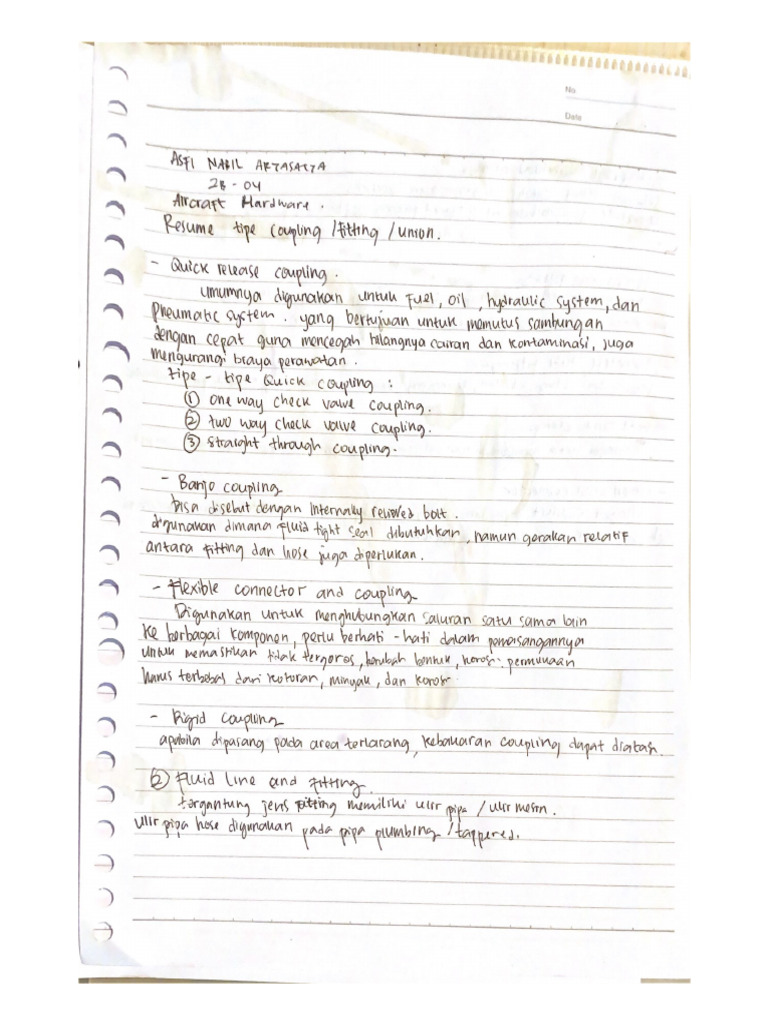 No
Date
ASFI NABIL ARYASATYA
2B - 04
Aircraft Hardware .
Resume tipe coupling /fitting /union.
- Quick release coupling .
Umumnya digunakan untuk Fuel, oil , hydraulic system, dan
Pneumatic system . yang bertujuan untuk memutus sambungan
dengan cepat guna mencegah hilangnya cairan dan kontaminasi, juga
mengurangi biaya perawatan .
tipe - tipe Quick coupling :
① one way check valve coupling.
② two way check valve coupling.
③ straight through coupling.
- Banjo coupling
bisa disebut dengan internally relieved bolt .
digunakan dimana fluid tight seal dibutuhkan, namun gerakan relatif
antara fitting dan hose juga diperlukan.
- Flexible connector and coupling
Digunakan untuk menghubungkan saluran satu sama lain
ke berbagai komponen, perlu berhati - hati dalam pemasangannya
untuk memastikan tidak tergores, berubah bentuk, korosi. permukaan
harus terbebas dari kotoran, minyak, dan korosi.
- Rigid coupling
apabila dipasang pada area terlarang, kebakaran coupling dapat diatasi.
② Fluid line and fitting.
tergantung jenis fitting memiliki ulir pipa / ulir mesin.
Ulir pipa hose digunakan pada pipa plumbing /tappered.